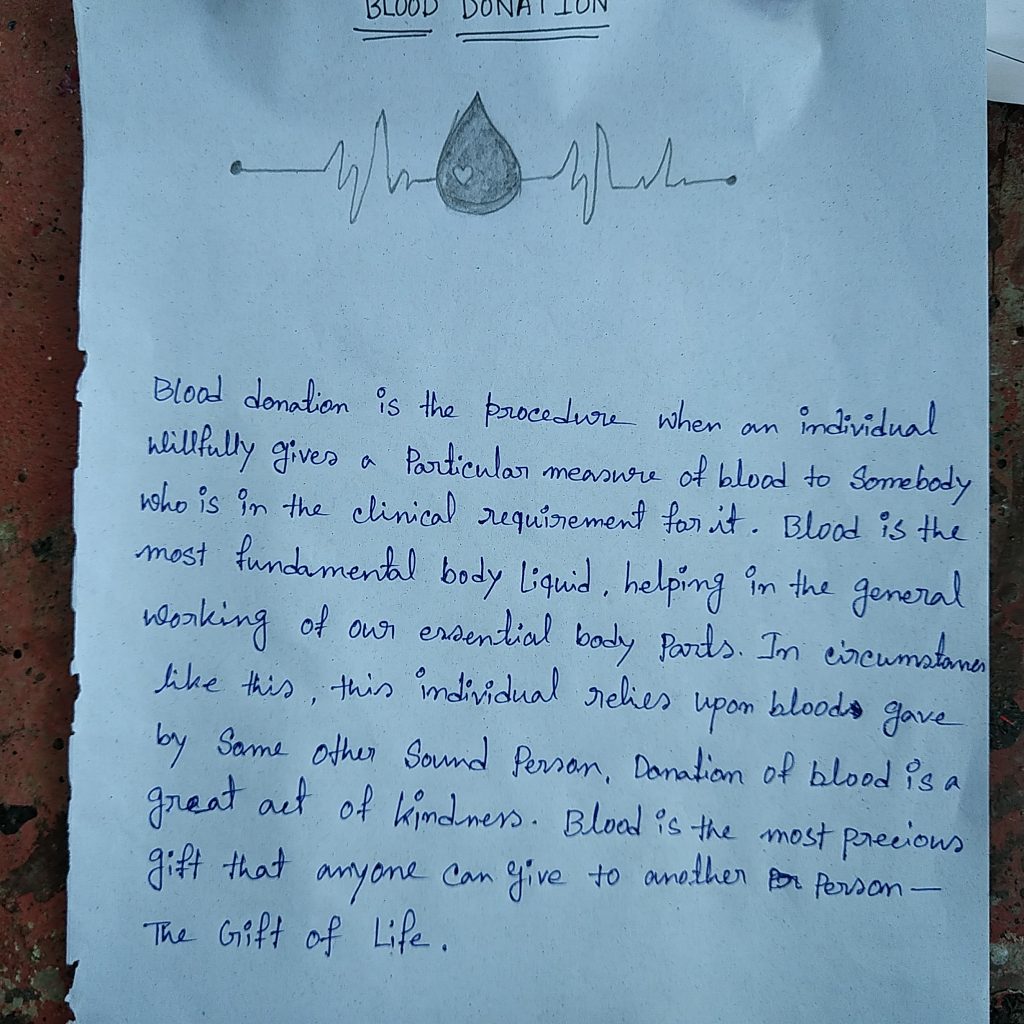 BLOOD DONATION
Blood donation is the procedure when an individual
willfully gives a Particular measure of blood to Somebody
who is in the clinical requirement for it. Blood is the
most fundamental body Liquid, helping in the general
working of our essential body Parts. In circumstances
like this, this individual relies upon blood gave
by Some other Sound Person. Donation of blood is a
great act of kindness. Blood is the most precious
gift that anyone can give to another Person—
The Gift of Life.